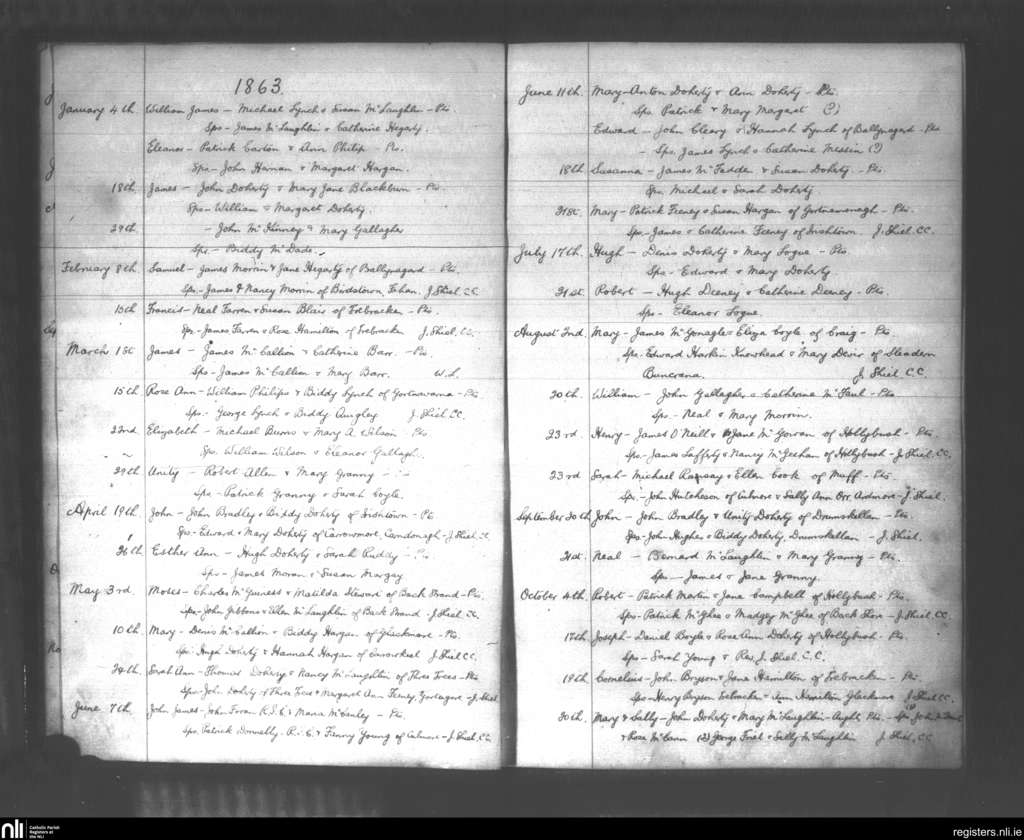 1863.
January 4th. William James - Michael Lynch & Susan McLaughlin - Pts.
Sps - James McLaughlin & Catherine Hegarty.
Eleanor - Patrick Carlon & Ann Philip - Ps.
Sps - John Heman & Margaret Hargan.
18th. James - John Doherty & Mary Jane Blackburn - Pts
Sps - William & Margaret Doherty.
29th. - John McKinney & Mary Gallagher
Sps - Biddy McDade.
February 8th. Samuel - James Morrin & Jane Hegarty of Ballynagard - Pts.
Sps - James & Nancy Morrin of Birdstown, Fahan. J. Shiel CC
15th Francis - Neal Farren & Susan Blair of Elebracken - Pts.
Sps - James Faren & Rose Hamilton of Elebracken J. Shiel. CC
March 1st James - James McCallion & Catherine Barr. - Pts.
Sps - James McCallion & Mary Barr. W.L.
15th Rose Ann - William Philips & Biddy Lynch of Gortnavarna - Pts
Sps - George Lynch & Biddy Quigley J. Shiel CC.
22nd Elizabeth - Michael Burns & Mary A. Wilson - Pts
Sps. William Wilson & Eleanor Gallagh.
29th Unity - Robert Allen & Mary Granny -
Sps - Patrick Granny & Sarah Coyle.
April 19th. John - John Bradley & Biddy Doherty of Inishtown - Pts
Sps - Edward & Mary Doherty of Carrowmore, Carndonagh - J. Shiel. CC
26th Esther Ann - Hugh Doherty & Sarah Ruddy - Pts
Sps - James Moran & Susan Margay
May 3rd. Moses - Charles McGuness & Matilda Steward of Back Strand - Pts.
Sps - John Gibbons & Ellen McLaughlin of Back Strand. J. Shiel CC
10th. Mary - Denis McCallion & Biddy Hargan of Glackmore - Pts.
Sps: Hugh Doherty & Hannah Hargan of Carrowkeel J. Shiel CC.
24th. Sarah Ann - Thomas Doherty & Nancy McLaughlin of Three Trees - Pts
Sps - John Doherty of Three Trees & Margaret Ann Feeney, - J. Shiel
June 7th. John James - John Foran R.I.C. & Maria McCauley - Pts.
Sps. Patrick Donnelly. R.I.C. & Fanny Young of Culmore - J. Shiel, CC
June 11th. Mary - Anton Doherty & Ann Doherty - Pts.
Sps. Patrick & Mary Margaret (?)
Edward - John Cleary & Hannah Lynch of Ballynagard - Pts
- Sps. James Lynch & Catherine Messin (?)
18th Susanna - James McFadden & Susan Doherty. - Pts.
Sps. Michael & Sarah Doherty
21st. Mary - Patrick Feeney & Susan Hargan of - Pts.
Sps - James & Catherine Feeney of Inishtown. J. Shiel CC.
July 17th. Hugh - Denis Doherty & Mary Logue - Pts
Sps - Edward & Mary Doherty
21st. Robert - Hugh Deeney & Catherine Deeney - Pts.
Sps - Eleanor Logue.
August 2nd. Mary - James McGonagle & Eliza Coyle of Craig - Pts
Sps. Edward Harkin Knowhead & Mary Devir of Sleadern
Buncrana. J. Shiel C.C.
20th. William - John Gallagher & Catherine McFaul - Pts
Sps. - Neal & Mary Morrin.
23rd. Henry - James O'Neill & Jane McGowan of Hollybush - Pts.
Sps - James Lafferty & Nancy McGeehan of Hollybush - J. Shiel, CC.
23rd Sarah - Michael Ramsay & Ellen Cook of Muff - Pts
Sps. - John Hutcheson of Culmore & Sally Ann Orr. Ardmore - J. Shiel.
September 20th John - John Bradley & Unity Doherty of Drumskellan - Pts.
Sps - John Hughes & Biddy Doherty, Drumskellan - J. Shiel.
21st. Neal - Bernard McLaughlin & Mary Granny - Pts.
Sps. - James & Jane Granny.
October 4th. Robert - Patrick Martin & Jane Campbell of Hollybush - Pts.
Sps - Patrick McGhee & Madgey McGhee of Back Shore - J. Shiel, CC.
17th Joseph - Daniel Boyle & Rose Ann Doherty of Hollybush - Pts.
Sps - Sarah Young & Rev. J. Shiel. C.C.
19th Cornelius - John Bryson & Jane Hamilton of Elebracken - Pts.
Sps - Henry Bryson Elebracken & Ann Hamilton Glackmore J. Shiel CC.
30th. Mary & Sally - John Doherty & Mary McLaughlin - Aught Pts. - Sps (1) John
& Rose McCann (2) George Friel & Sally McLaughlin J. Shiel, CC
nli Catholic Parish
Registers at
the NLI
registers.nli.ie